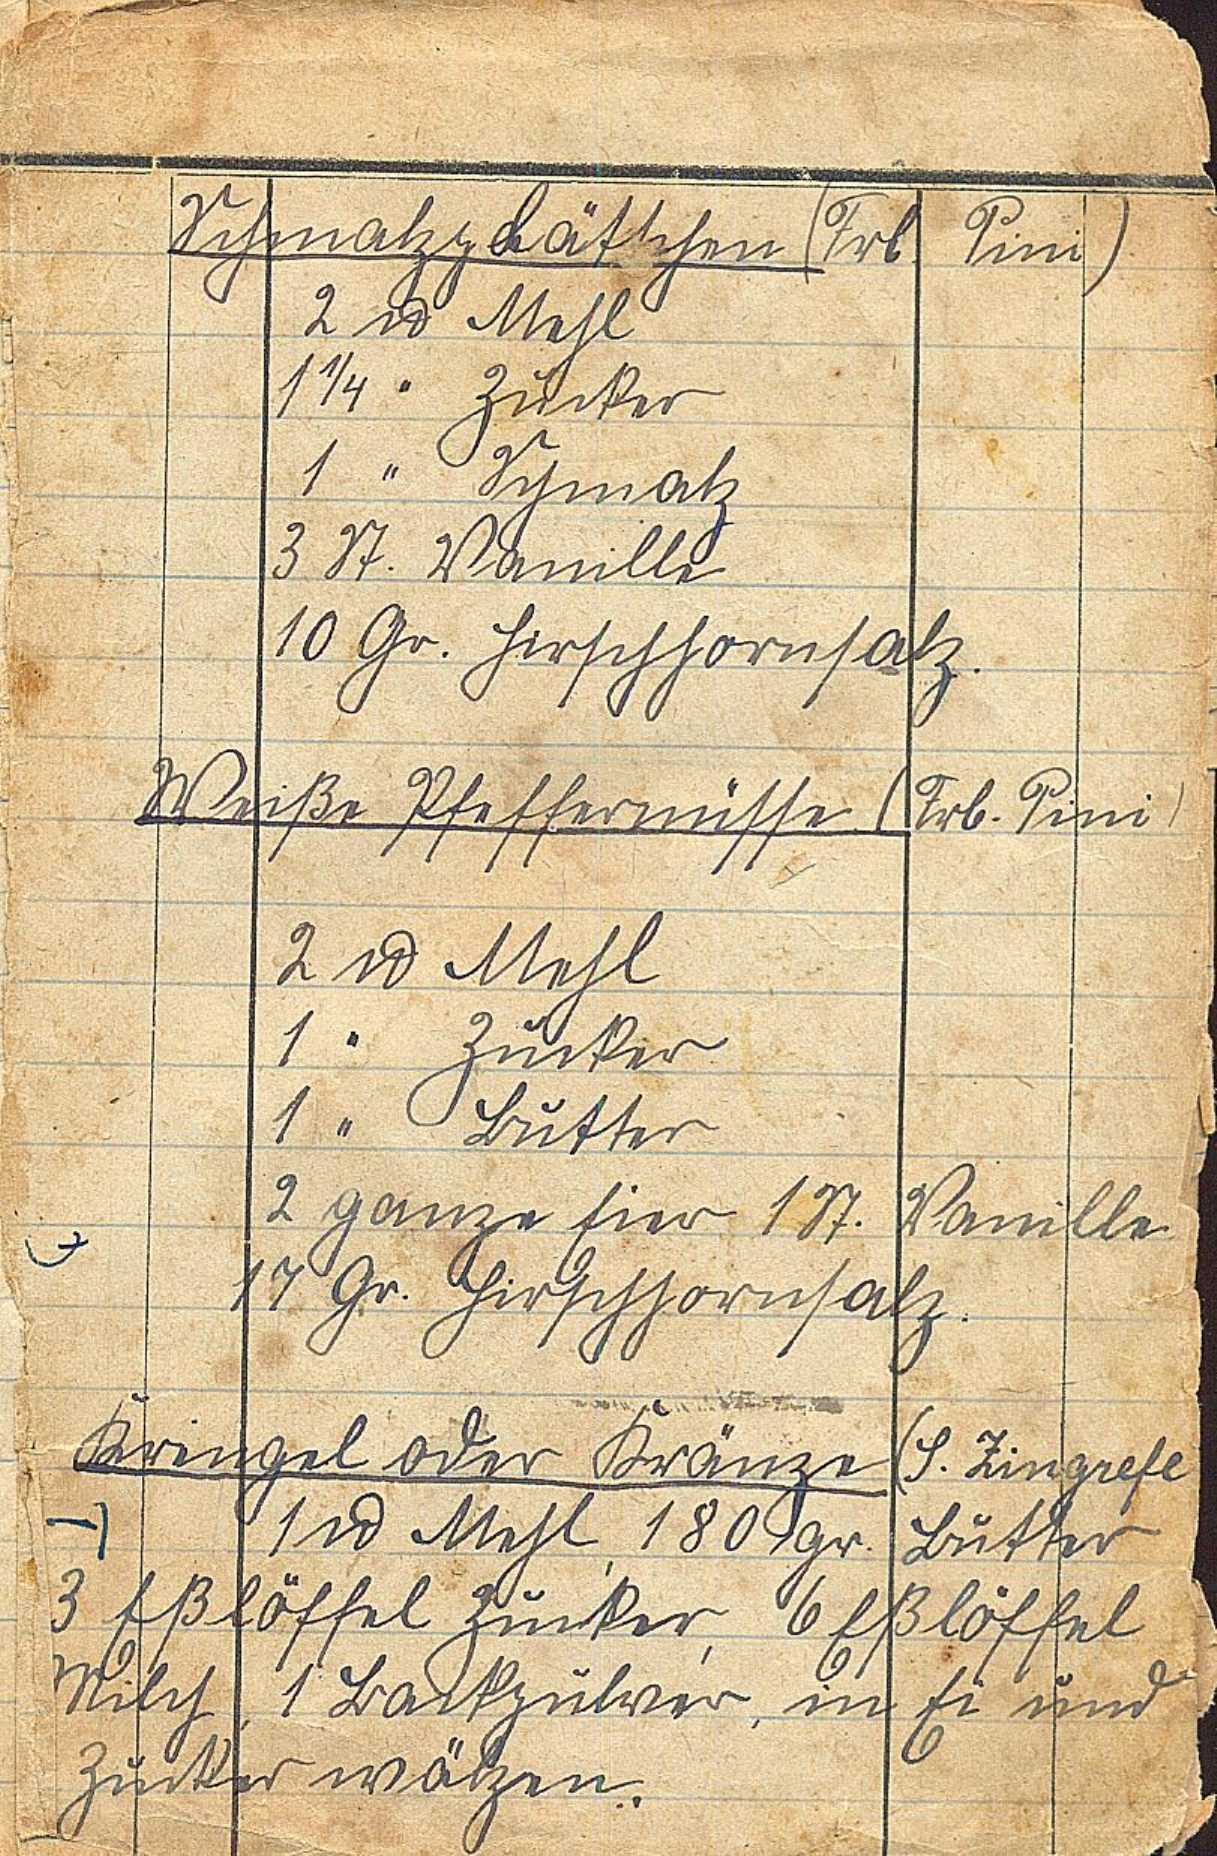 Schmalzplätzchen (Frl. Pini)
2 ℔ Mehl
1 1/4 " Zucker
1 " Schmalz
3 St. Vanille
10 Gr. Hirschhornsalz.
Weiße Pfeffernüsse (Frl. Pini)
2 ℔ Mehl
1 " Zucker
1 " Butter
2 ganze Eier 1 St. Vanille
17 Gr. Hirschhornsalz.
Kringel oder Kränze (S. Zingrefe
1 ℔ Mehl, 180 gr. Butter
3 Eßlöffel Zucker, 6 Eßlöffel
Milch, 1 Backpulver, in Ei und
Zucker wälzen.